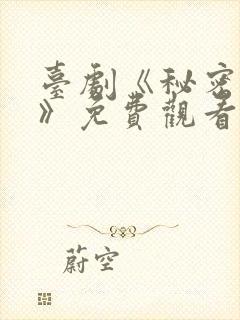 臺劇《秘密
》免費觀看
蔚空